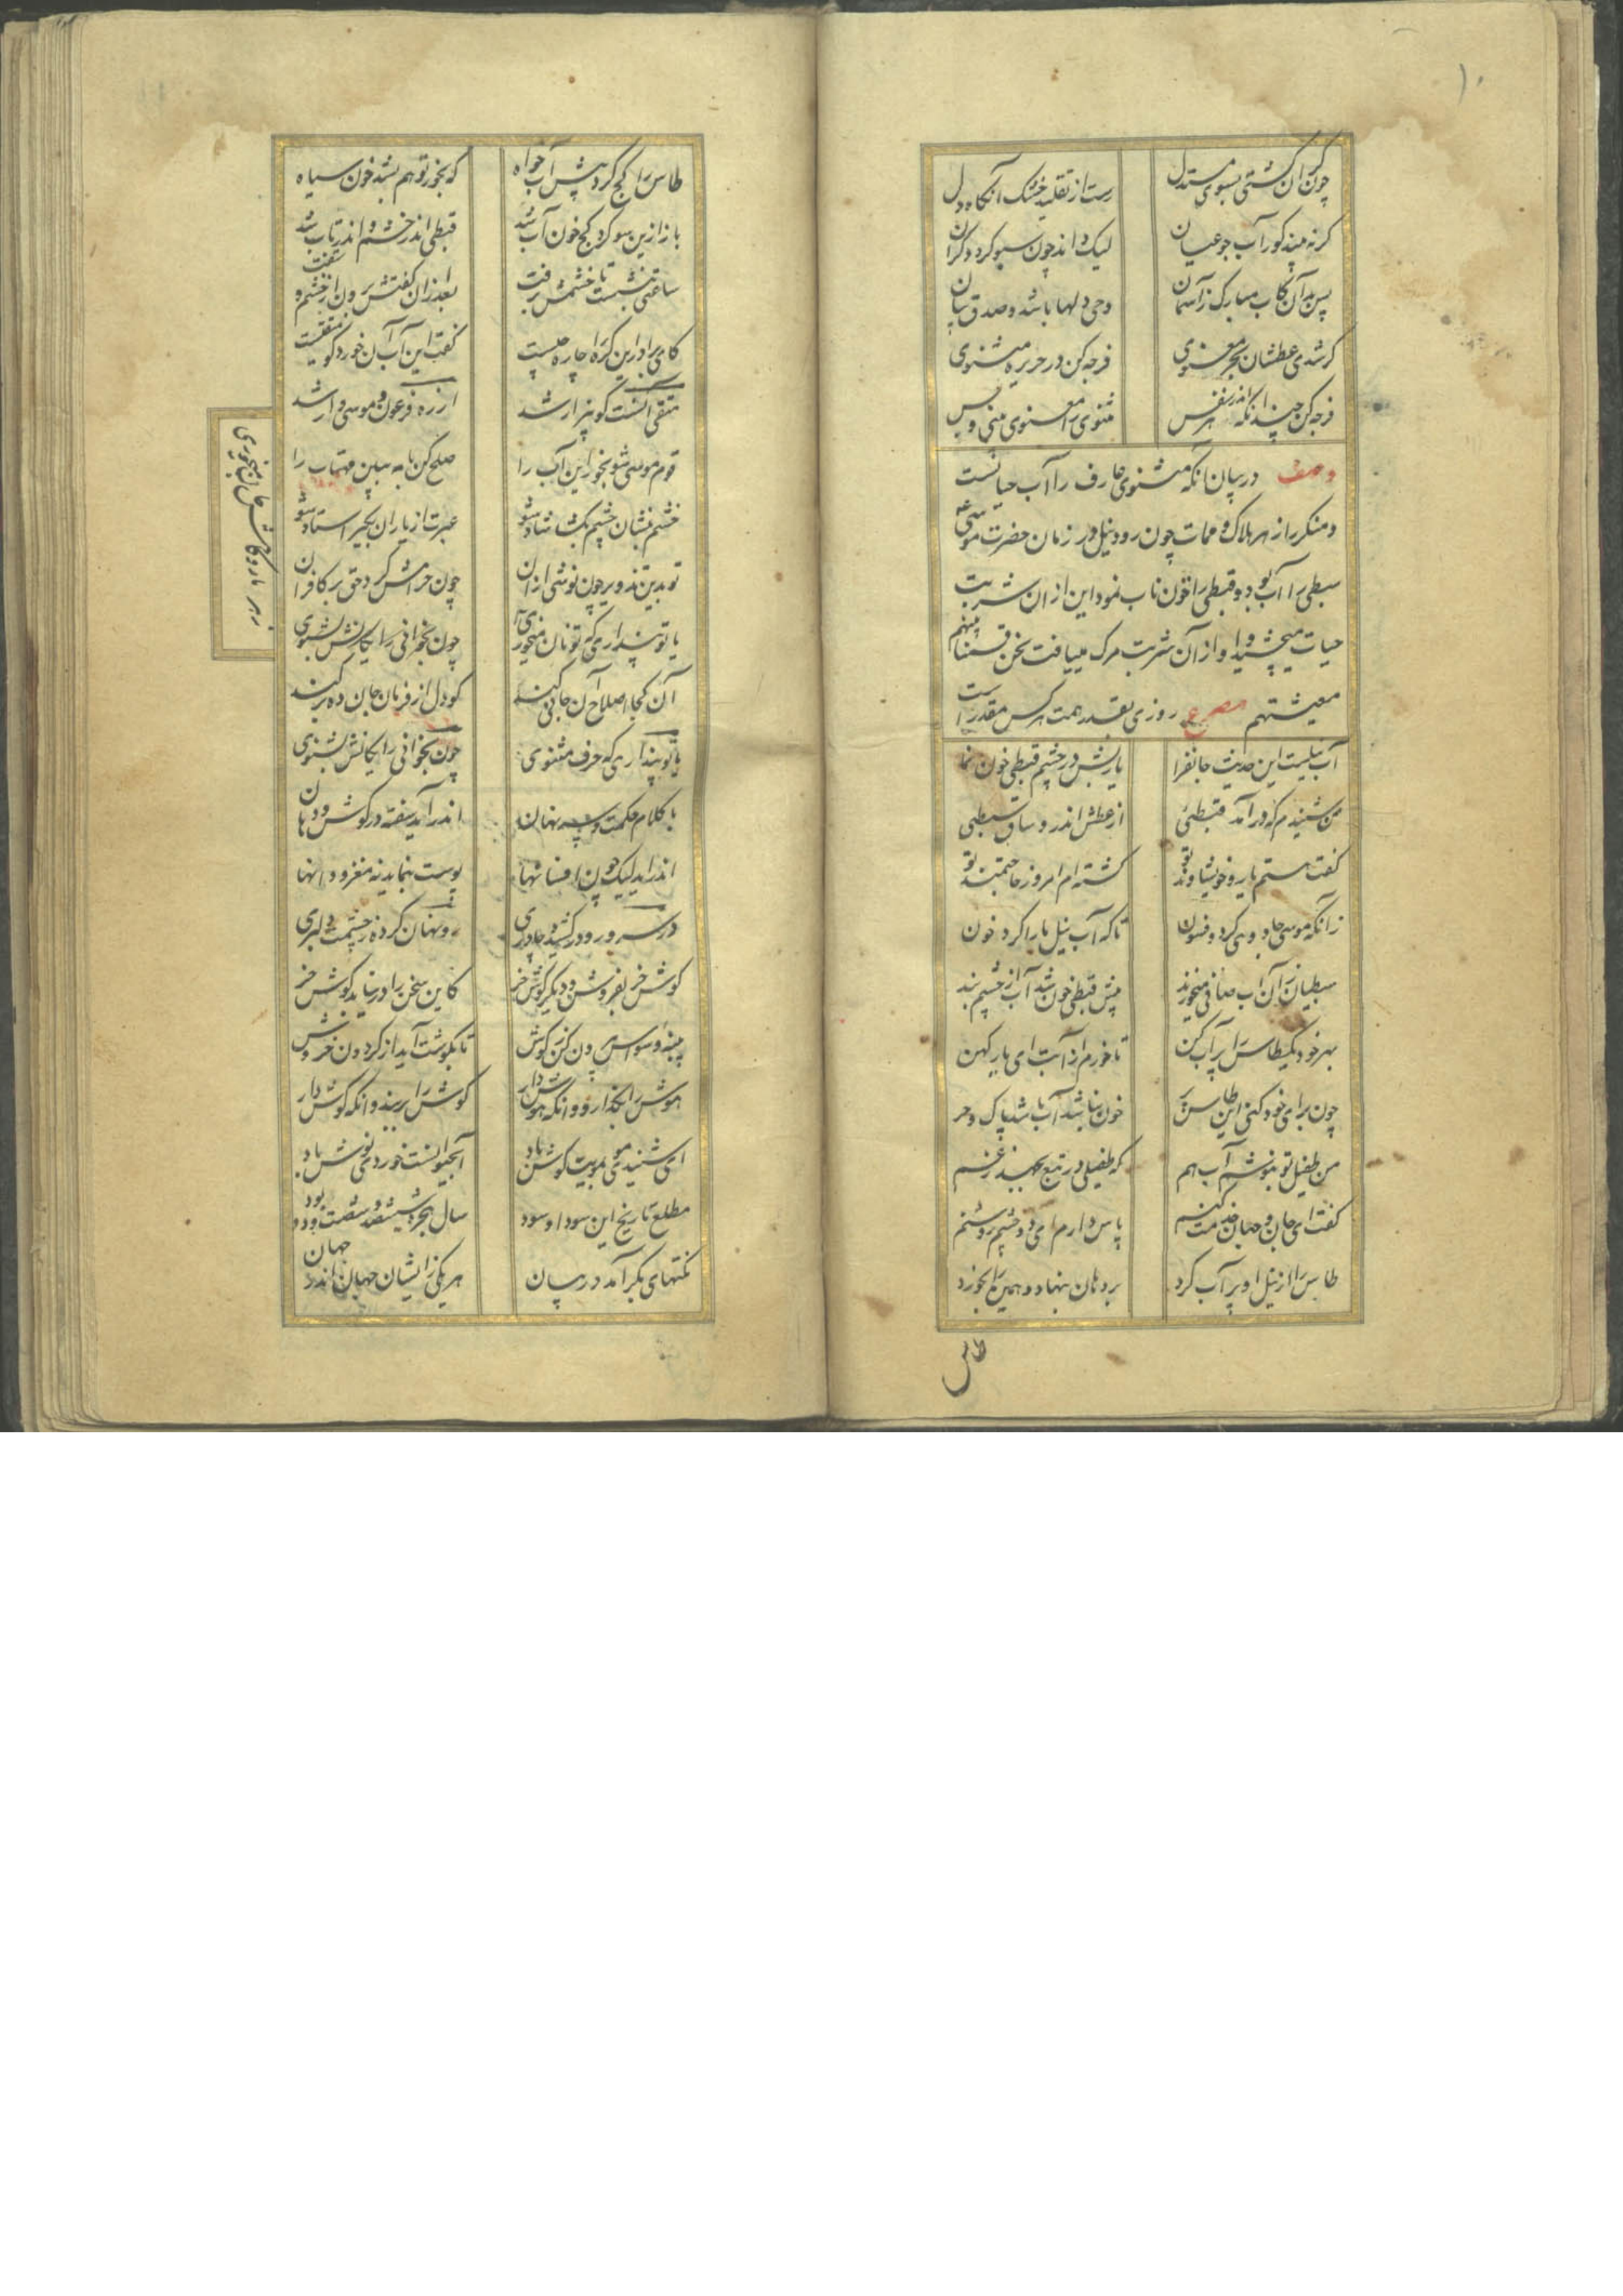 ۱۰
چون گران گشتی بسوی مستدل رست از تقلید خشک آنگاه دل
گر نه بیند کور آب جو عیان لیک داند چون سبو گردد گران
پس بدان کاب مبارک ز آسمان وحی دلها باشد و صدق بیان
گر شدی عطشان بحر معنوی فرجه کن در جزیره مثنوی
فرجه کن چندانکه اندر هر نفس مثنوی را معنوی بینی و بس
وصف در بیان آنکه مثنوی عارف را آب حیاتست
و منکر را زهر هلاک و ممات چون رود نیل در زمان حضرت موسی
سبطی را آب بود و قبطی را خون ناب نمود این از آن شربت
حیات میچشید و او از آن شربت مرک مییافت نحن قسمنا بینهم
معیشتهم مصرع روزی بقدر همت هر کس مقدر است
آب نیلست این حدیث جانفزا یا ربش در چشم قبطی خون نما
من شنیدم که در آمد قبطئی از عطش اندر وثاق سبطئی
گفت هستم یار و خویشاوند تو گشته ام امروز حاجتمند تو
زانکه موسی جادویی کرد و فسون تا که آب نیل ما را کرد خون
سبطیان زان آب صافی میخورند پیش قبطی خون شد آب از چشم بند
بهر خود یک طاس را پر آب کن تا خورم از آبت ای یار کهن
چون برای خود کنی این طاس پر خون نباشد آب باشد پاک و حر
من طفیل تو بنوشم آب هم که طفیلی در تبع بجهد ز غم
گفت ای جان و جهان خدمت کنم پاس دارم ای دو چشم روشنم
طاس را از نیل او پر آب کرد بر دهان بنهاد و نیمی را بخورد
طاس
طاس را کج کرد پیش آب خواه که بخور تو هم بشد خون سیاه
باز ازین سو کرد کج خون آب شد قبطی اندر خشم و اندر تاب شد
ساعتی بنشست تا خشمش برفت بعد از آن گفتش
کای برادر این گره را چاره چیست گفت این آب آن خورد کو متقیست
متقی آنست کو بیزار شد از ره فرعون و موسی وار شد
قوم موسی شو بخور این آب را صلح کن با مه ببین مهتاب را
خشم بنشان چشم بگشا شاد شو عبرت از یاران بگیر استاد شو
تو بدین تزویر چون نوشی از آن چون حرامش کرد حق بر کافران
یا تو پنداری که تو نان میخوری
آن کجا اصلاح آن جانی کند کو دل از فرمان جان ده بر کند
یا تو پنداری که حرف مثنوی چون بخوانی رایگانش بشنوی
یا کلام حکمت و سر نهان اندر آید سغبه در گوش و دهان
اندر آید لیک چون افسانها پوست بنماید نه مغز و دانها
در سر و رو در کشیده چادری رو نهان کرده ز چشمت دلبری
گوش خر بفروش و دیگر گوش خر کاین سخن را در نیابد گوش خر
پنبه وسواس بیرون کن ز گوش تا بگوشت آید از گردون خروش
هوش را بگذار و وانگه هوش دار گوش را بربند وانگه گوش دار
مطلع تاریخ این سودا و سود سال هجرت ششصد و شصت و دو بود
نکتهای بکر آمد در بیان هر یکی زایشان جهان اندر جهان